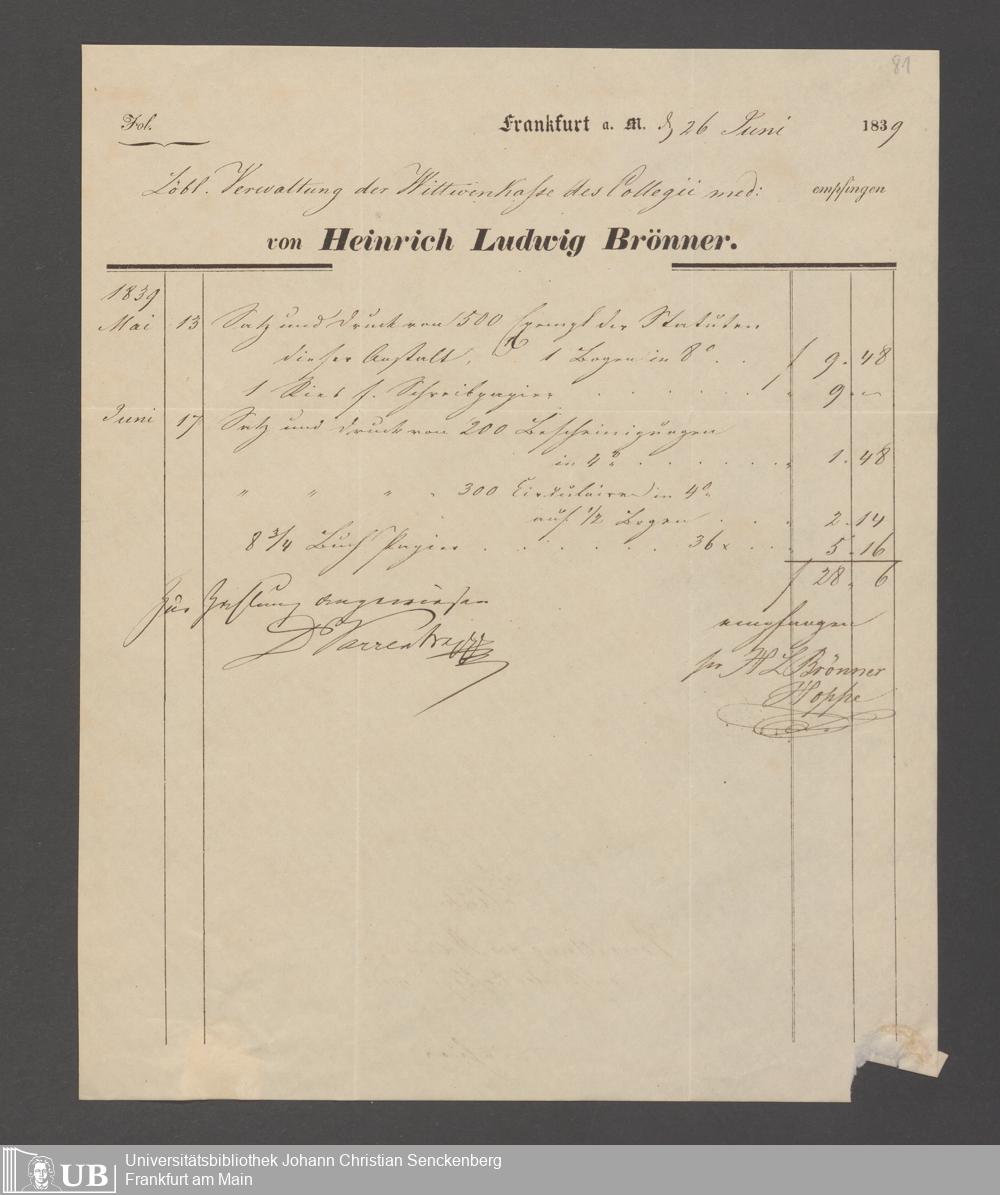 81
Fol.
Frankfurt a. M. d 26 Juni 1839
Löbl. Verwaltung der Wittwenkasse des Collegii med: empfingen
von Heinrich Ludwig Brönner.
1839
Mai 13 Satz und Druck von 500 Exempl der Statuten
dieser Anstalt, 1 Bogen in 8° . . f 9. 48
1 Ries f. Schreibpapier . . . . . . " 9. –
Juni 17 Satz und Druck von 200 Bescheinigungen
in 4° . . . . . . " 1. 48
" " " " 300 Circulaire in 4°
auf 1/2 Bogen . . . " 2. 14
8 3/4 Buch Papier . . . . . . 36 x . . . " 5. 16
f 28. 6
Zur Zahlung angewiesen
Dr Varrentrapp
empfangen
pr H L Brönner
Hoppe
UB
Universitätsbibliothek Johann Christian Senckenberg
Frankfurt am Main